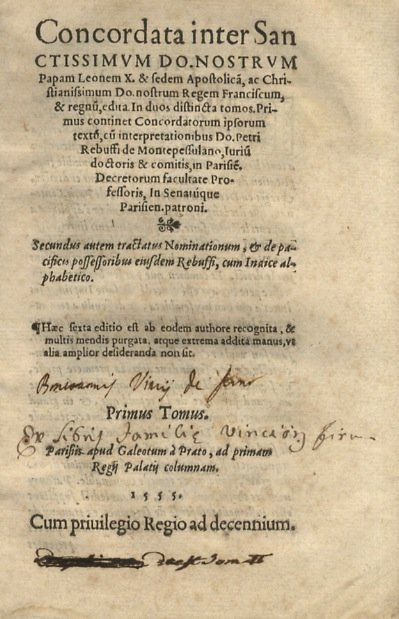 Concordata inter San
CTISSIMVM DO. NOSTRVM
Papam Leonem X. & sedem Apostolicã, ac Chri-
stianissimum Do. nostrum Regem Franciscum,
& regnũ, edita. In duos distincta tomos. Pri-
mus continet Concordatorum ipsorum
textũ, cũ interpretationibus Do. Petri
Rebuffi de Montepessulano, Iuriũ
doctoris & comitis, in Parisiẽ.
Decretorum facultate Pro-
fessoris, In Senatúque
Parisien. patroni.
Secundus autem tractatus Nominationum, & de pa-
cificis possessoribus eiusdem Rebuffi, cum Indice al-
phabetico.
¶Hæc sexta editio est ab eodem authore recognita, &
multis mendis purgata, atque extrema addita manus, vt
alia amplior desideranda non sit.
de
Primus Tomus.
Ex libris familię
Parisiis apud Galeotum à Prato, ad primam
Regij Palatij columnam.
1555.
Cum priuilegio Regio ad decennium.
deest tom II